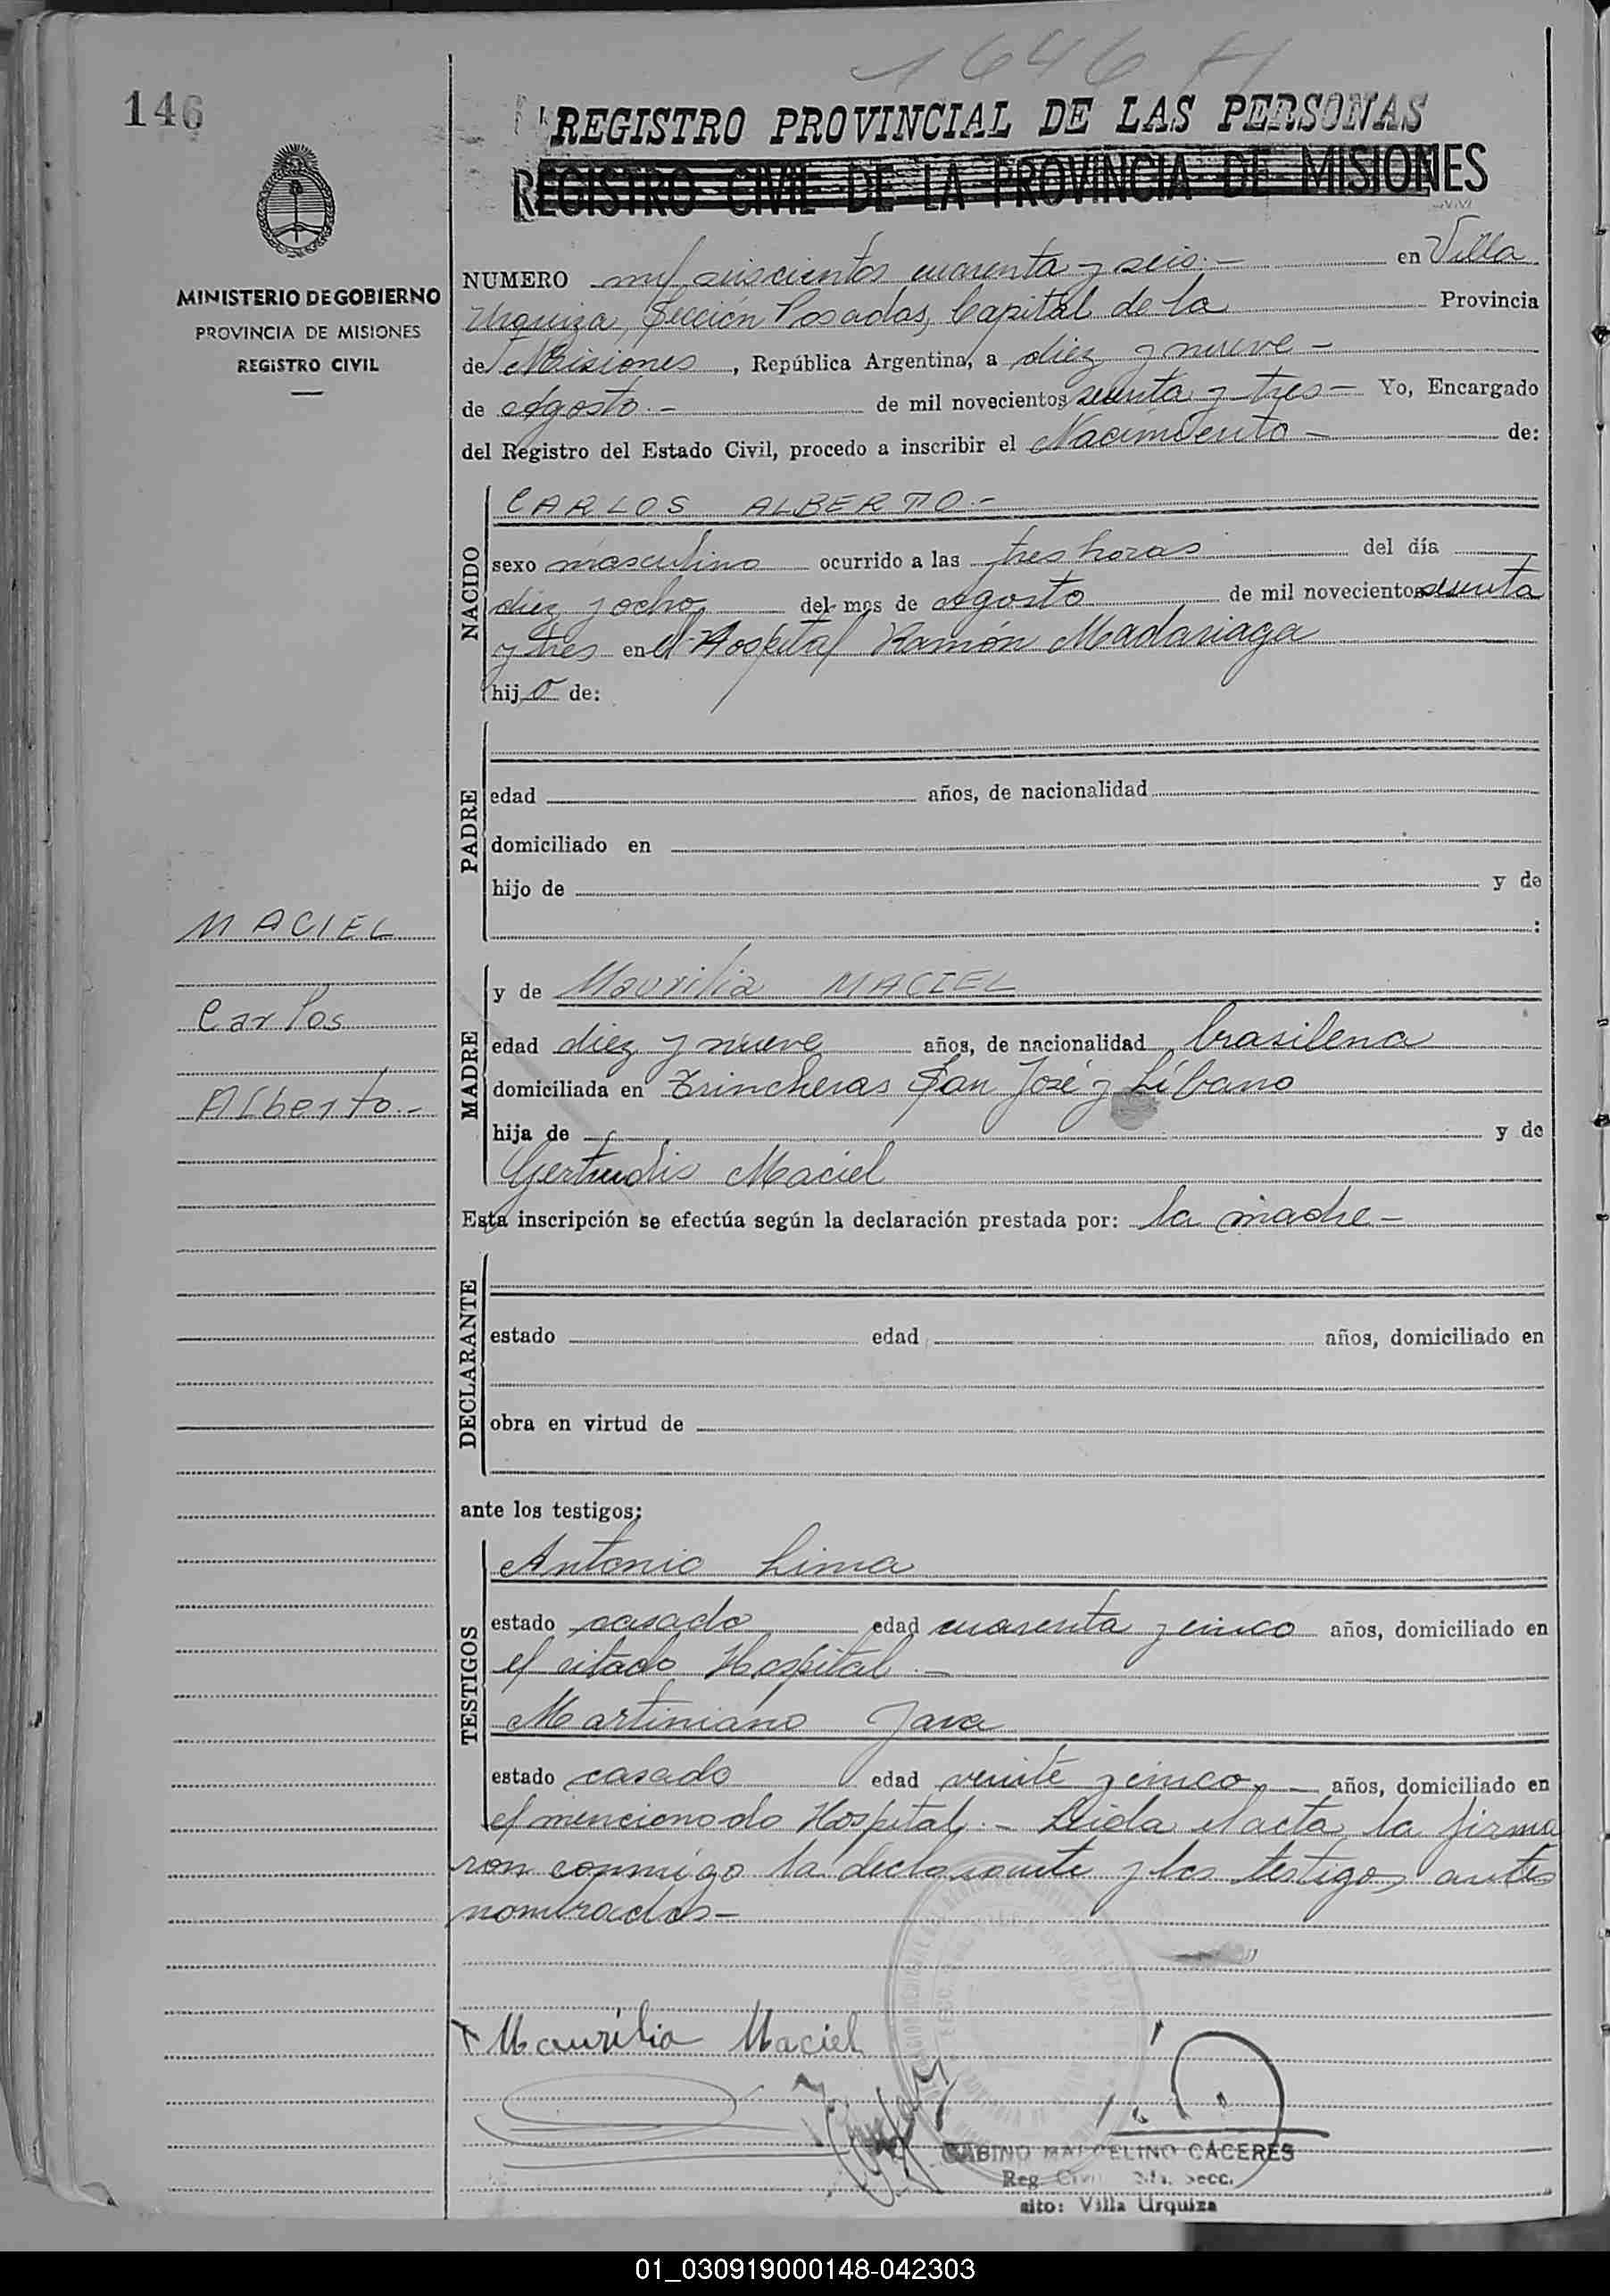 1646 H
146
REGISTRO PROVINCIAL DE LAS PERSONAS
REGISTRO CIVIL DE LA PROVINCIA DE MISIONES
MINISTERIO DE GOBIERNO
PROVINCIA DE MISIONES
REGISTRO CIVIL
NUMERO mil seiscientos cuarenta y seis.- en Villa
Urquiza, Sección Posadas, Capital de la Provincia
de Misiones, República Argentina, a diez y nueve -
de Agosto.- de mil novecientos sesenta y tres - Yo, Encargado
del Registro del Estado Civil, procedo a inscribir el Nacimiento - de:
NACIDO
CARLOS ALBERTO.-
sexo masculino ocurrido a las tres horas del día
diez y ocho del mes de Agosto de mil novecientos sesenta
y tres en el Hospital Ramón Madariaga
hijo de:
PADRE
edad años, de nacionalidad
domiciliado en
hijo de y de
:
MACIEL
Carlos
Alberto.-
MADRE
y de Maurilia MACIEL
edad diez y nueve años, de nacionalidad brasilena
domiciliada en Trincheras San José y Líbano
hija de y de
Gertrudis Maciel
Esta inscripción se efectúa según la declaración prestada por: la madre -
DECLARANTE
estado edad años, domiciliado en
obra en virtud de
ante los testigos:
TESTIGOS
Antonio Lima
estado casado edad cuarenta y cinco años, domiciliado en
el citado Hospital.-
Martiniano Java
estado casado edad veinte y cinco, - años, domiciliado en
el mencionado Hospital.- Leída el acta, la firma
ron conmigo la declarante y los testigos antes
nombrados -
Maurilia Maciel
SABINO MARCELINO CÁCERES
Reg. Civil Secc.
sito: Villa Urquiza
01_030919000148-042303